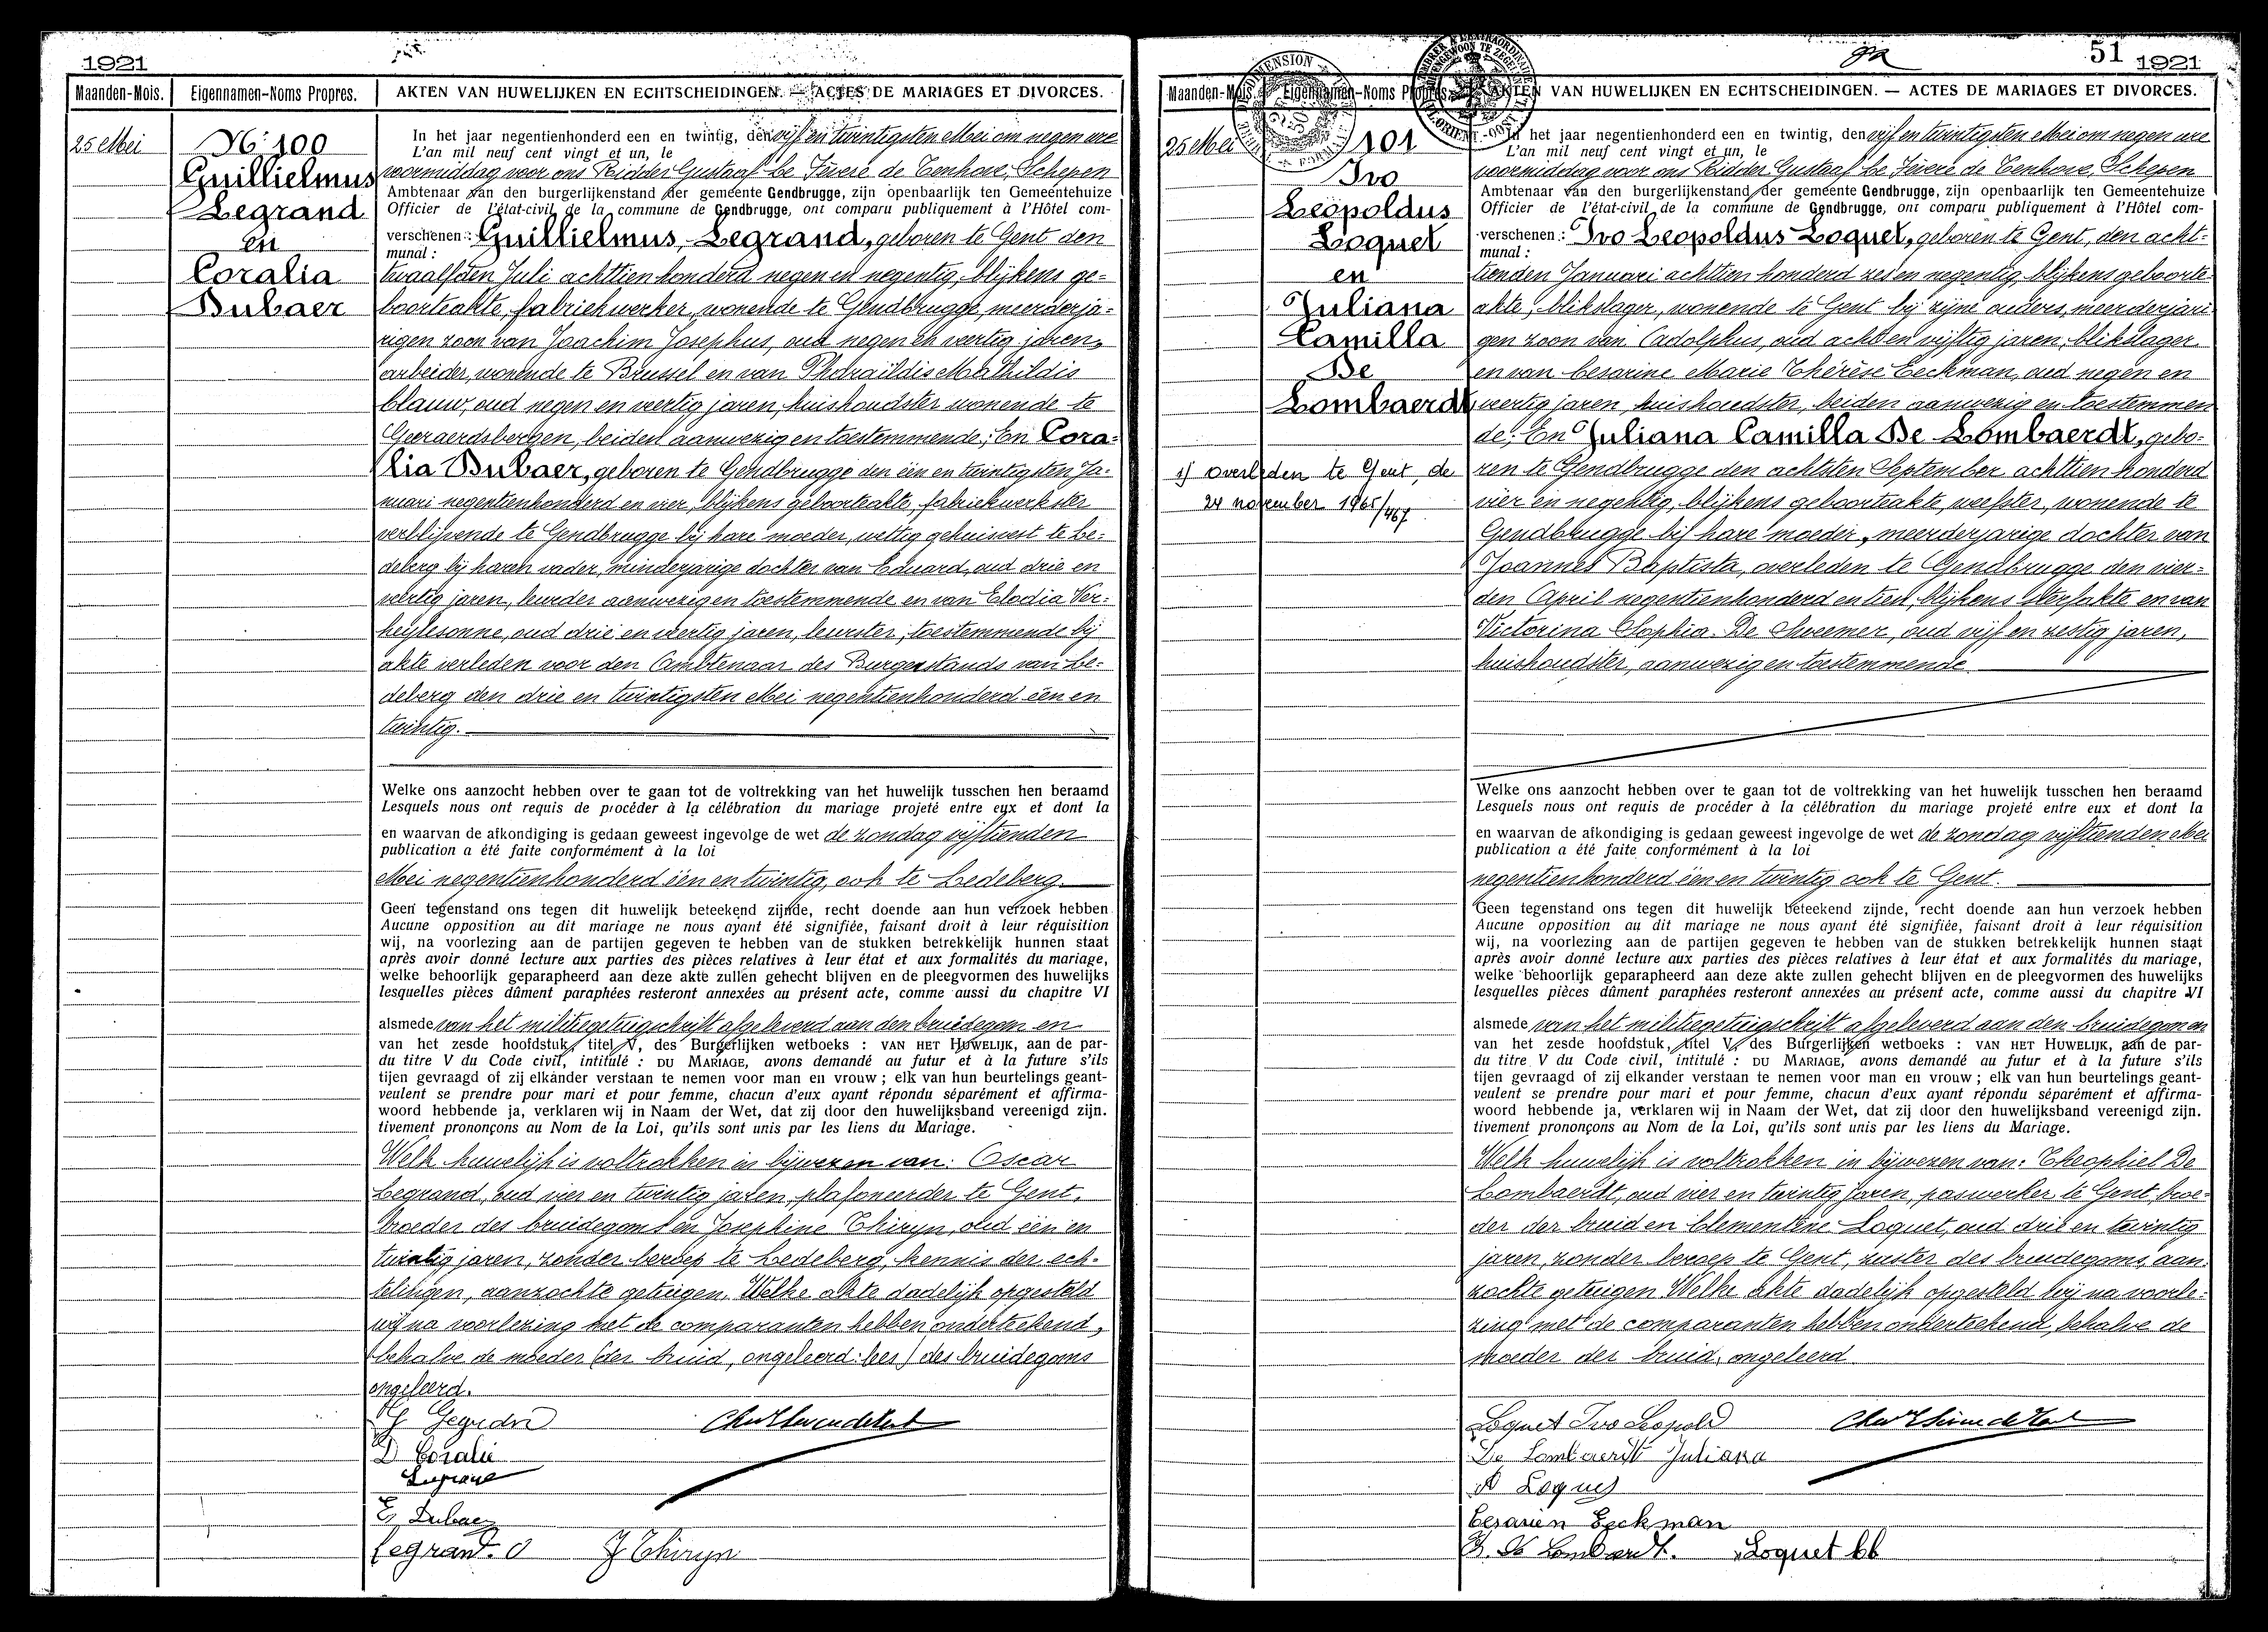 1921
Maanden-Mois. Eigennamen-Noms Propres. AKTEN VAN HUWELIJKEN EN ECHTSCHEIDINGEN. — ACTES DE MARIAGES ET DIVORCES.
25 Mei
No 100
Guillielmus
Legrand
en
Coralia
Dubaer
In het jaar negentienhonderd een en twintig, den vijf en twintigsten Mei om negen ure
L'an mil neuf cent vingt et un, le
voormiddag voor ons Ridder Gustaaf Le Fèvere de Tenhove, Schepen
Ambtenaar van den burgerlijkenstand der gemeente Gendbrugge, zijn openbaarlijk ten Gemeentehuize
Officier de l'état-civil de la commune de Gendbrugge, ont comparu publiquement à l'Hôtel com-
verschenen: Guillielmus Legrand, geboren te Gent den
munal:
twaalfden Juli achttien honderd negen en negentig, blijkens ge=
boorteakte, fabriekwerker, wonende te Gendbrugge, meerderja=
rigen zoon van Joachim Josephus, oud negen en veertig jaren,
arbeider, wonende te Brussel en van Mathildis
blauw, oud negen en veertig jaren, huishoudster wonende te
Geeraerdsbergen, beiden aanwezig en toestemmende; En Cora=
lia Dubaer, geboren te Gendbrugge den één en twintigsten Ja=
nuari negentienhonderd en vier, blijkens geboorteakte, fabriekwerkster
verblijvende te Gendbrugge bij hare moeder, wettig gehuisvest te Le=
deberg bij haren vader, minderjarige dochter van Eduard, oud drie en
veertig jaren, leurder aanwezig en toestemmende en van Elodia Ver=
heylesonne, oud drie en veertig jaren, leurster, toestemmende bij
akte verleden voor den Ambtenaar des Burgerstands van Le=
deberg den drie en twintigsten Mei negentienhonderd één en
twintig.
Welke ons aanzocht hebben over te gaan tot de voltrekking van het huwelijk tusschen hen beraamd
Lesquels nous ont requis de procéder à la célébration du mariage projeté entre eux et dont la
en waarvan de afkondiging is gedaan geweest ingevolge de wet de zondag vijftienden
publication a été faite conformément à la loi
Mei negentienhonderd één en twintig, ook te Ledeberg
Geen tegenstand ons tegen dit huwelijk beteekend zijnde, recht doende aan hun verzoek hebben
Aucune opposition au dit mariage ne nous ayant été signifiée, faisant droit à leur réquisition
wij, na voorlezing aan de partijen gegeven te hebben van de stukken betrekkelijk hunnen staat
après avoir donné lecture aux parties des pièces relatives à leur état et aux formalités du mariage,
welke behoorlijk geparapheerd aan deze akte zullen gehecht blijven en de pleegvormen des huwelijks
lesquelles pièces dûment paraphées resteront annexées au présent acte, comme aussi du chapitre VI
alsmede van het militiegetuigschrift afgeleverd aan den bruidegom en
van het zesde hoofdstuk, titel V, des Burgerlijken wetboeks : VAN HET HUWELIJK, aan de par-
du titre V du Code civil, intitulé : DU MARIAGE, avons demandé au futur et à la future s'ils
tijen gevraagd of zij elkander verstaan te nemen voor man en vrouw ; elk van hun beurtelings geant-
veulent se prendre pour mari et pour femme, chacun d'eux ayant répondu séparément et affirma-
woord hebbende ja, verklaren wij in Naam der Wet, dat zij door den huwelijksband vereenigd zijn.
tivement prononçons au Nom de la Loi, qu'ils sont unis par les liens du Mariage.
Welk huwelijk is voltrokken in bijwezen van: Oscar
Legrand, oud vier en twintig jaren, plafoneerder te Gent,
broeder des bruidegoms en Josephine Thiryn, oud één en
twintig jaren, zonder beroep te Ledeberg, kennis der ech=
telingen, aanzochte getuigen. Welke akte dadelijk opgesteld
wij na voorlezing met de comparanten hebben onderteekend,
behalve de moeder (der bruid, ongeleerd: lees) des bruidegoms
ongeleerd.
D Coralie
Legrand
E. Dubaer
Legrand. O J Thiryn
51 1921
Maanden-Mois. Eigennamen-Noms Propres. AKTEN VAN HUWELIJKEN EN ECHTSCHEIDINGEN. — ACTES DE MARIAGES ET DIVORCES.
25 Mei
101
Ivo
Leopoldus
Loquet
en
Juliana
Camilla
De
Lombaerdt
overleden te Gent, de
24 november 1965/467
In het jaar negentienhonderd een en twintig, den vijf en twintigsten Mei om negen ure
L'an mil neuf cent vingt et un, le
voormiddag voor ons Ridder Gustaaf Le Fèvere de Tenhove, Schepen
Ambtenaar van den burgerlijkenstand der gemeente Gendbrugge, zijn openbaarlijk ten Gemeentehuize
Officier de l'état-civil de la commune de Gendbrugge, ont comparu publiquement à l'Hôtel com-
verschenen: Ivo Leopoldus Loquet, geboren te Gent, den acht=
munal:
tienden Januari achttien honderd zes en negentig, blijkens geboorte
akte, blikslager, wonende te Gent bij zijne ouders, meerderjari
gen zoon van Adolphus, oud acht en vijftig jaren, blikslager
en van Cesarine Marie Thérèse Eeckman, oud negen en
veertig jaren, huishoudster, beiden aanwezig en toestemmen
de; En Juliana Camilla De Lombaerdt, gebo=
ren te Gendbrugge den achtsten September achttien honderd
vier en negentig, blijkens geboorteakte, weefster, wonende te
Gendbrugge bij hare moeder, meerderjarige dochter van
Joannes Baptista, overleden te Gendbrugge den vier=
den April negentienhonderd en tien, blijkens sterfakte en van
Victorina Sophia De , oud vijf en zestig jaren,
huishoudster, aanwezig en toestemmende
Welke ons aanzocht hebben over te gaan tot de voltrekking van het huwelijk tusschen hen beraamd
Lesquels nous ont requis de procéder à la célébration du mariage projeté entre eux et dont la
en waarvan de afkondiging is gedaan geweest ingevolge de wet de zondag vijftienden Mei
publication a été faite conformément à la loi
negentienhonderd één en twintig ook te Gent.
Geen tegenstand ons tegen dit huwelijk beteekend zijnde, recht doende aan hun verzoek hebben
Aucune opposition au dit mariage ne nous ayant été signifiée, faisant droit à leur réquisition
wij, na voorlezing aan de partijen gegeven te hebben van de stukken betrekkelijk hunnen staat
après avoir donné lecture aux parties des pièces relatives à leur état et aux formalités du mariage,
welke behoorlijk geparapheerd aan deze akte zullen gehecht blijven en de pleegvormen des huwelijks
lesquelles pièces dûment paraphées resteront annexées au présent acte, comme aussi du chapitre VI
alsmede van het militiegetuigschrift afgeleverd aan den bruidegom en
van het zesde hoofdstuk, titel V, des Burgerlijken wetboeks : VAN HET HUWELIJK, aan de par-
du titre V du Code civil, intitulé : DU MARIAGE, avons demandé au futur et à la future s'ils
tijen gevraagd of zij elkander verstaan te nemen voor man en vrouw ; elk van hun beurtelings geant-
veulent se prendre pour mari et pour femme, chacun d'eux ayant répondu séparément et affirma-
woord hebbende ja, verklaren wij in Naam der Wet, dat zij door den huwelijksband vereenigd zijn.
tivement prononçons au Nom de la Loi, qu'ils sont unis par les liens du Mariage.
Welk huwelijk is voltrokken in bijwezen van: Theophiel De
Lombaerdt, oud vier en twintig jaren, paswerker te Gent, broe=
der der bruid en Clementine Loquet, oud drie en twintig
jaren, zonder beroep te Gent, zuster des bruidegoms, aan
zochte getuigen. Welke akte dadelijk opgesteld wij na voorle=
zing met de comparanten hebben onderteekend, behalve de
moeder der bruid, ongeleerd.
Loquet Ivo Leopold
De Lombaerdt Juliana
A Loquet
Cesarien Eeckman
De Lombaerdt. Loquet